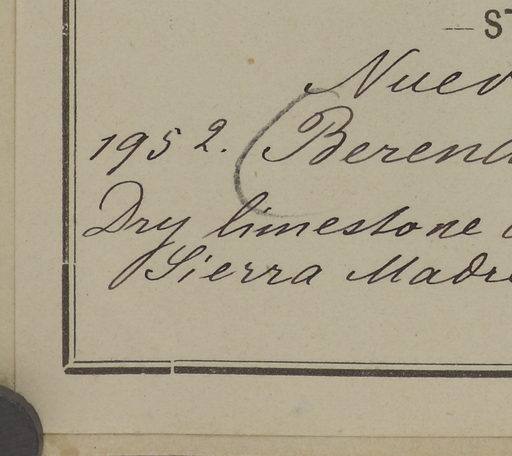 — ST
Nuev
1952. (Berend
Dry limestone
Sierra Madre